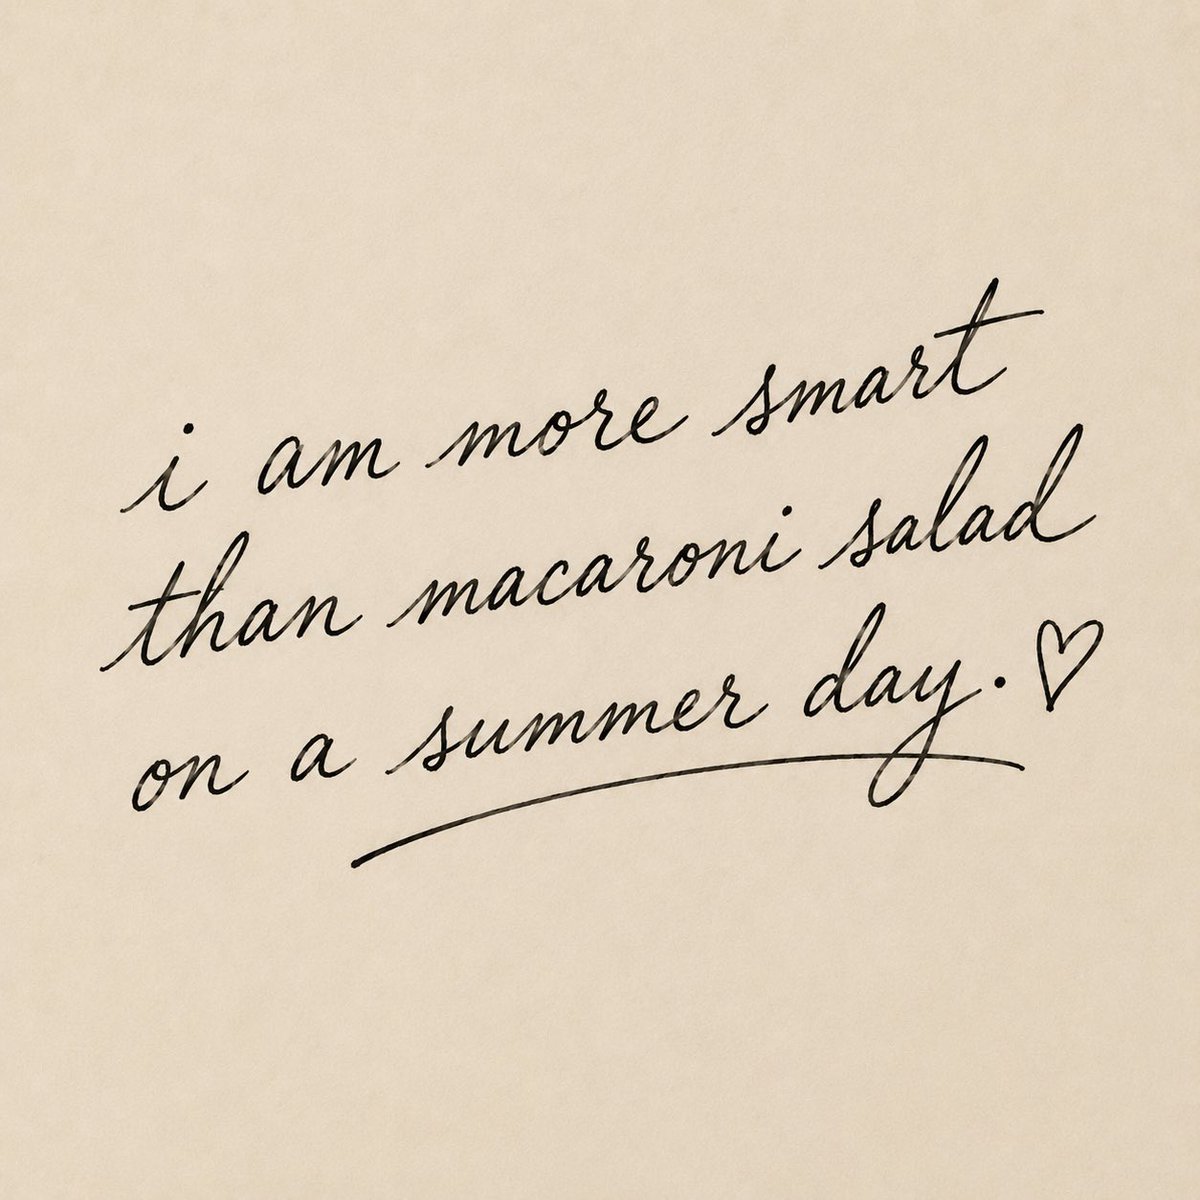 i am more smart
than macaroni salad
on a summer day. ♡